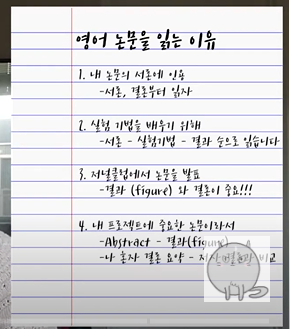 영어 논문을 읽는 이유
1. 내 논문의 서론에 인용
-서론, 결론부터 읽자
2. 실험 기법을 배우기 위해
-서론 - 실험기법 - 결과 순으로 읽습니다
3. 저널클럽에서 논문을 발표
-결과 (figure) 와 결론이 중요!!!
4. 내 프로젝트에 중요한 논문이라서
-Abstract - 결과(figure)
-나 혼자 결론 요약 - 저자 결론과 비교